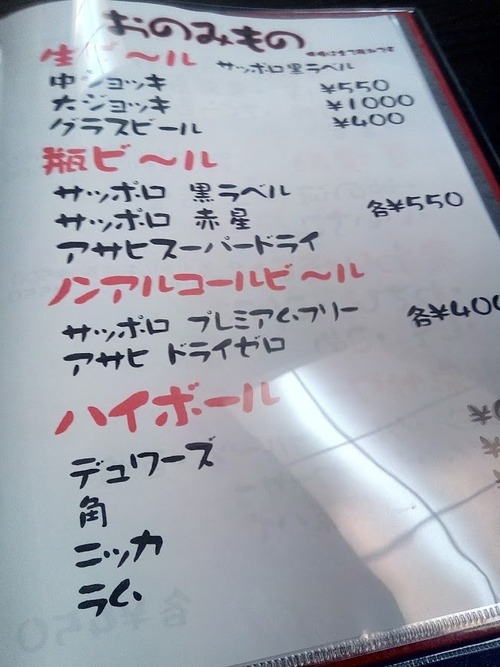 おのみもの
生ビ〜ル サッポロ黒ラベル
中ジョッキ ¥550
大ジョッキ ¥1000
グラスビール ¥400
瓶ビ〜ル
サッポロ 黒ラベル
サッポロ 赤星 各¥550
アサヒスーパードライ
ノンアルコールビ〜ル
サッポロ プレミアムフリー 各¥400
アサヒ ドライゼロ
ハイボール
デュワーズ
角
ニッカ
ラム